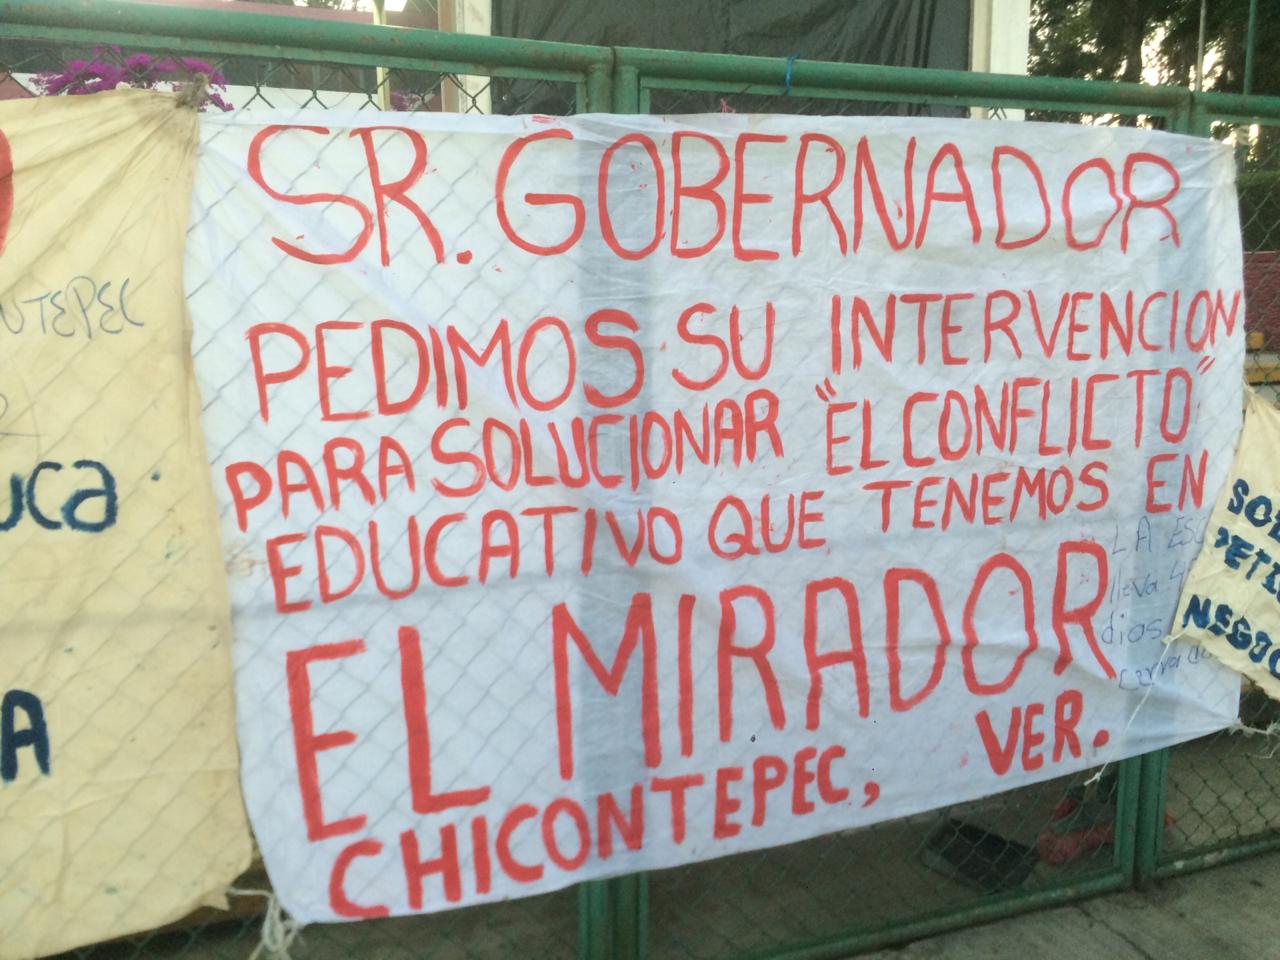 SR. GOBERNADOR
PEDIMOS SU INTERVENCION
PARA SOLUCIONAR "EL CONFLICTO"
EDUCATIVO QUE TENEMOS EN
EL MIRADOR
CHICONTEPEC, VER.
LA ESC
lleva
dios
UTEPEC
uca
A
SOL
PETI
NEGOC